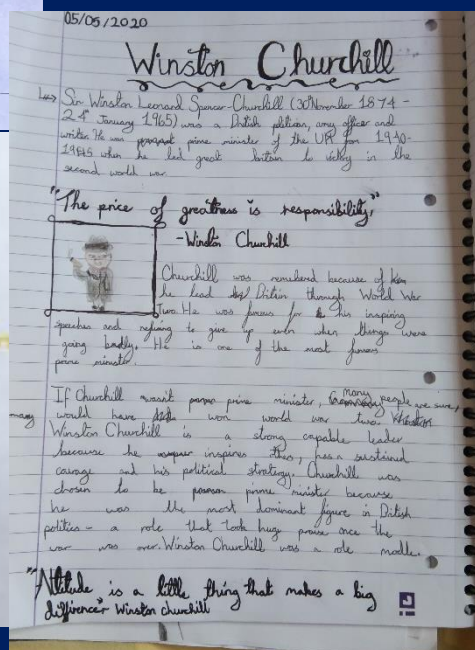 05/05/2020
Winston Churchill
Sir Winston Leonard Spencer-Churchill (30 November 1874 -
24th January 1965) was a British politian, army officer and
writer. He was prime minister of the UK from 1940-
1945 when he led great britain to victory in the
second world war
"The price of greatness is responsibility"
-Winston Churchill
Churchill was rememberd because of
he lead Britain through World War
Two. He was famous for his inspiring
speeches and refusing to give up even when things were
going badly. He is one of the most famous
prime minister.
If Churchill wasn't prime minister, many people are sure,
would have won world war two.
Winston Churchill is a strong capable leader
because he inspires, has a sustained
courage and his political strategy. Churchill was
chosen to be prime minister because
he was the most dominant figure in British
politics - a role that took huge praise once the
war was over. Winston Churchill was a role modle.
"Attitude is a little thing that makes a big
diffirence" Winston churchill